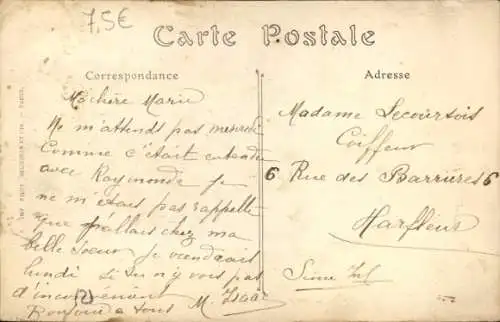 7,5€
Carte Postale
Correspondance
Adresse
Ma chère Marie
Ne m'attends pas mercredi
Comme c'était entendu
avec Raymonde je
ne m'étais pas rappelée
que j'allais chez ma
belle soeur je viendrais
lundi si tu n'y vois pas
d'inconvénient
Bonjour a tous M. Isaac
Madame Lecourtois
Coiffeur
6 Rue des Barrières 6
Harfleur
Seine Inf